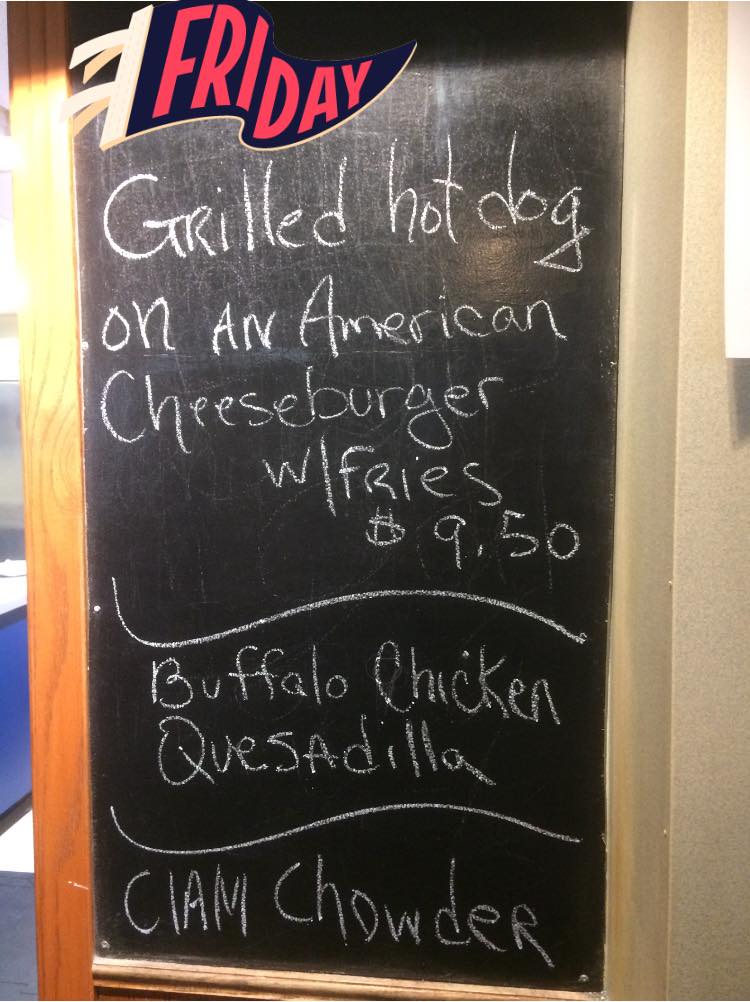 FRIDAY
GRilled hot dog
on AN American
Cheeseburger
w/FRies
$ 9.50
Buffalo Chicken
QuesAdilla
ClAM ChowdeR